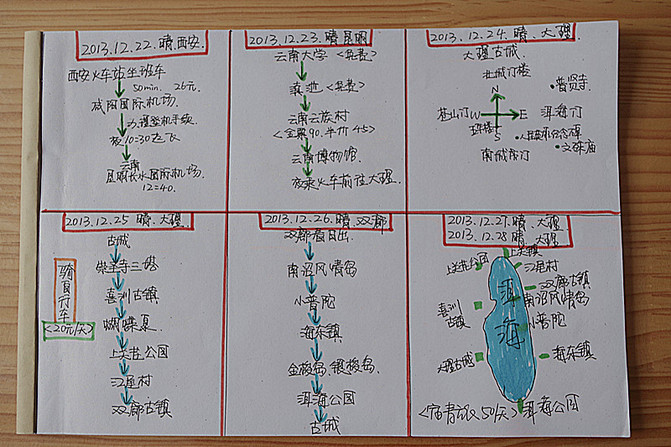 2013.12.22.晴.西安.
西安火车站坐班车
50min. 26元.
咸阳国际机场.
办理登机手续.
夜10=30起飞
云南
昆明长水国际机场.
12=40.
2013.12.23.晴.昆明
云南大学<免费>
滇池<免费>
云南云族村
<全票90.半价45>
云南博物馆.
夜乘火车前往大理.
2013.12.24.晴.大理
大理古城
北城门楼
N
普贤寺.
苍山门W
E 洱海门
五华楼
S
人民英雄纪念碑
文庙
南城门
2013.12.25 晴.大理
古城
崇圣寺三塔
喜洲古镇
蝴蝶
上关花公园
江尾村
双廊古镇
自行车
<20元/天>
2013.12.26.晴.双廊
双廊看日出.
南诏风情岛
小普陀
海东镇
金梭岛.银梭岛.
洱海公园
古城
2013.12.27.晴.大理
2013.12.28.晴.大理
上关镇
上关花公园
江尾村
双廊古镇
南诏风情岛
喜洲
古镇
洱海
小普陀
大理古城
海东镇
洱海公园